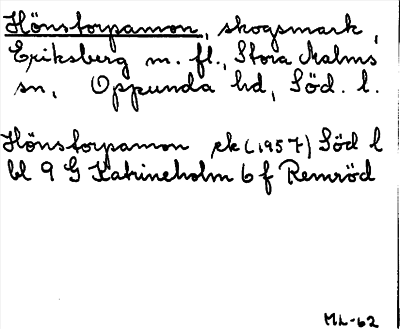 Hönstorpamon, skogsmark,
Eriksberg m. fl., Stora Malms
sn, Oppunda hd, Söd. l.
Hönstorpamon ek (1957) Söd l
bl 9 G Katrineholm 6 f Remröd
ML-62